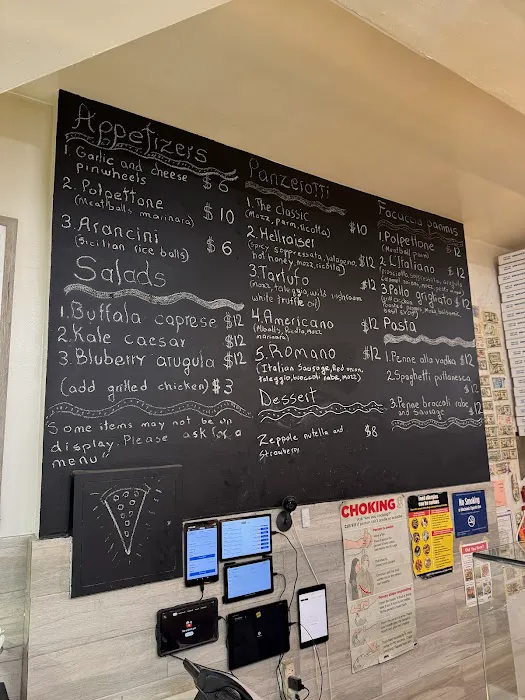 Appetizers
1 Garlic and cheese pinwheels $6
2. Polpettone $10
(Meatballs marinara)
3. Arancini $6
(Sicilian rice balls)
Salads
1. Buffala caprese $12
2. Kale caesar $12
3 Bluberry arugula $12
(add grilled chicken) $3
"Some items may not be on
display. Please ask for a
menu"
Panzerotti
1. The classic $10
(Mozz, parm, ricotta)
2. Hellraiser $12
(Spicy soppressata, jalapeno,
hot honey, mozz, ricotta)
3. Tartufo $12
(mozz, taleggio, wild mushroom
white truffle oil)
4. Americano $12
(Meatballs, Ricotta, Mozz
marinara)
5. Romano $12
(Italian Sausage, Red onion,
taleggio, broccoli rabe, mozz)
Dessert
Zeppole nutella and $8
Strawberry
Focuccia paninis
1. Polpettone $12
(Meatball parm)
2. L'italiano $12
3. Pollo grigliato $12
Pasta
1. Penne alla vodka $12
2. Spaghetti puttanesca $12
3. Penne broccoli rabe
and Sausage $12
CHOKING
No Smoking